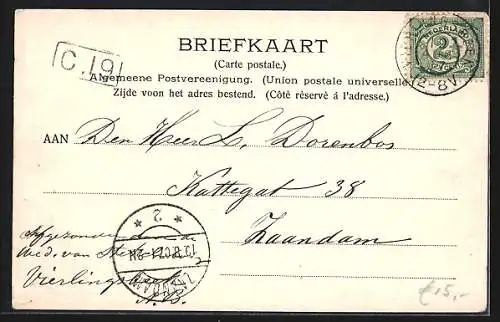 BRIEFKAART
(Carte postale.)
C.19
Algemeene Postvereeniging. (Union postale universelle)
Zijde voor het adres bestemd. (Côté rèservè á l'adresse.)
NEDERLAND
2½
2-8V
AAN Den Heer L. Dorenbos
Kattegat 38
Zaandam
Afgezonden door de
Wed. van
Vierlings
N.B.
2
ZAANDAM
€15,-